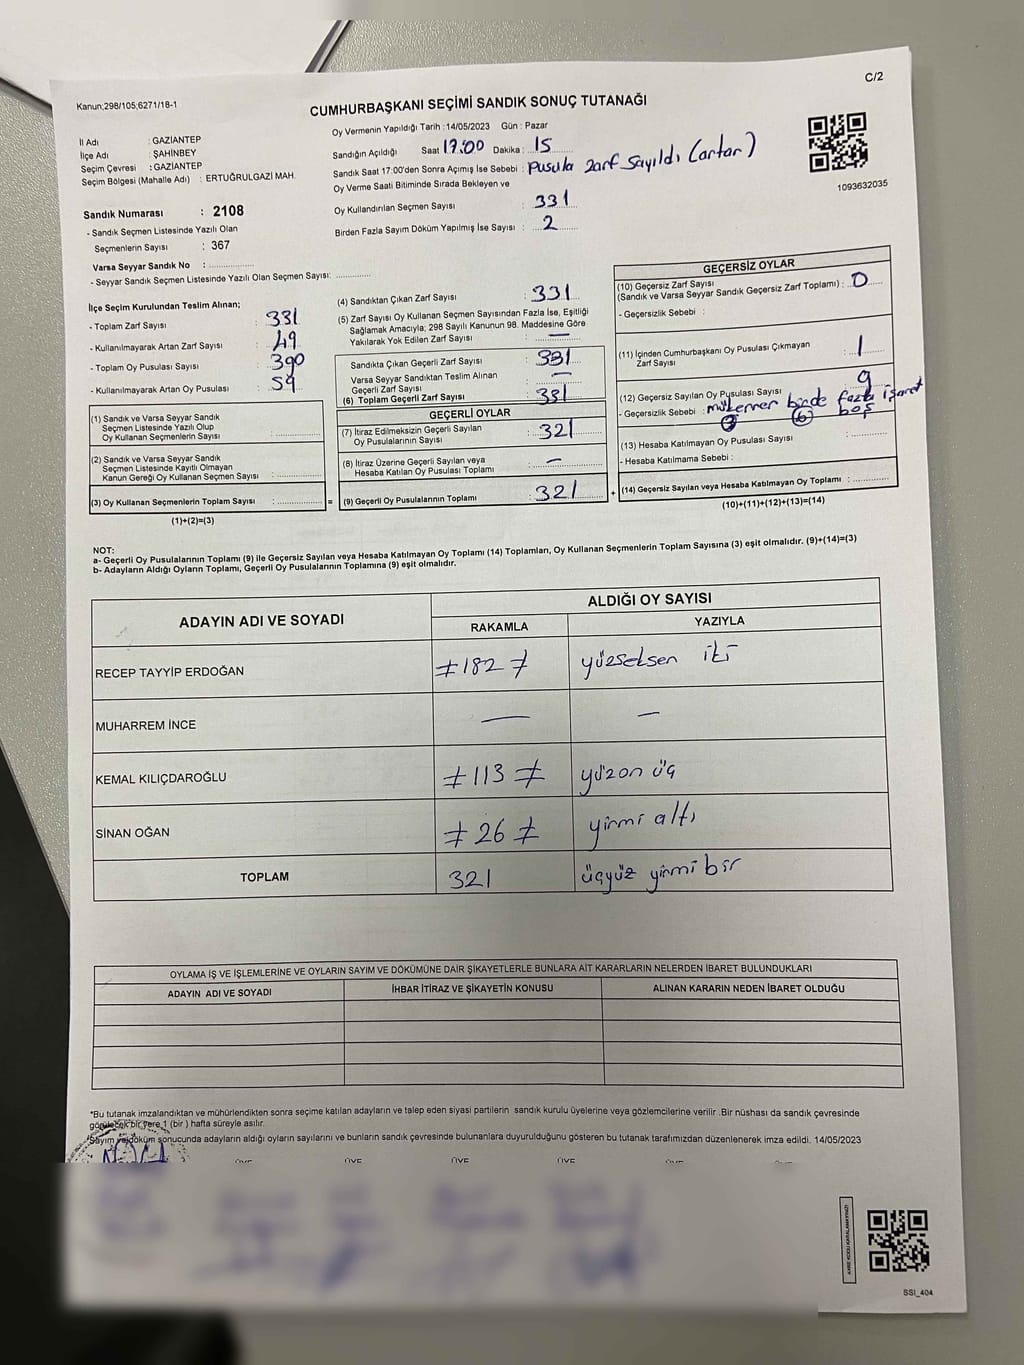 C/2
Kanun;298/105;6271/18-1
CUMHURBAŞKANI SEÇİMİ SANDIK SONUÇ TUTANAĞI
İl Adı : GAZİANTEP
İlçe Adı : ŞAHİNBEY
Seçim Çevresi : GAZİANTEP
Seçim Bölgesi (Mahalle Adı) : ERTUĞRULGAZİ MAH.
Sandık Numarası : 2108
- Sandık Seçmen Listesinde Yazılı Olan
Seçmenlerin Sayısı : 367
Varsa Seyyar Sandık No :
- Seyyar Sandık Seçmen Listesinde Yazılı Olan Seçmen Sayısı:
Oy Vermenin Yapıldığı Tarih :14/05/2023 Gün : Pazar
Sandığın Açıldığı Saat 17:00 Dakika : 15
Sandık Saat 17:00'den Sonra Açımış İse Sebebi : Pusula zarf sayıldı (artar)
Oy Verme Saati Bitiminde Sırada Bekleyen ve
Oy Kullandırılan Seçmen Sayısı : 331
Birden Fazla Sayım Döküm Yapılmış İse Sayısı : 2
1093632035
İlçe Seçim Kurulundan Teslim Alınan;
- Toplam Zarf Sayısı : 381
- Kullanılmayarak Artan Zarf Sayısı : 49
- Toplam Oy Pusulası Sayısı : 390
- Kullanılmayarak Artan Oy Pusulası : 59
(1) Sandık ve Varsa Seyyar Sandık
Seçmen Listesinde Yazılı Olup
Oy Kullanan Seçmenlerin Sayısı :
(2) Sandık ve Varsa Seyyar Sandık
Seçmen Listesinde Kayıtlı Olmayan
Kanun Gereği Oy Kullanan Seçmen Sayısı :
(3) Oy Kullanan Seçmenlerin Toplam Sayısı :
(1)+(2)=(3)
=
(4) Sandıktan Çıkan Zarf Sayısı : 331
(5) Zarf Sayısı Oy Kullanan Seçmen Sayısından Fazla İse, Eşitliği
Sağlamak Amacıyla; 298 Sayılı Kanunun 98. Maddesine Göre
Yakılarak Yok Edilen Zarf Sayısı : —
Sandıkta Çıkan Geçerli Zarf Sayısı : 331
Varsa Seyyar Sandıktan Teslim Alınan
Geçerli Zarf Sayısı : —
(6) Toplam Geçerli Zarf Sayısı : 331
GEÇERLİ OYLAR
(7) İtiraz Edilmeksizin Geçerli Sayılan
Oy Pusulalarının Sayısı : 321
(8) İtiraz Üzerine Geçerli Sayılan veya
Hesaba Katılan Oy Pusulası Toplamı : —
(9) Geçerli Oy Pusulalarının Toplamı : 321
+
GEÇERSİZ OYLAR
(10) Geçersiz Zarf Sayısı
(Sandık ve Varsa Seyyar Sandık Geçersiz Zarf Toplamı) : 0
- Geçersizlik Sebebi :
(11) İçinden Cumhurbaşkanı Oy Pusulası Çıkmayan
Zarf Sayısı : 1
(12) Geçersiz Sayılan Oy Pusulası Sayısı : 9
- Geçersizlik Sebebi : mükerrer birde fazla işaret
boş
(13) Hesaba Katılmayan Oy Pusulası Sayısı :
- Hesaba Katılmama Sebebi :
(14) Geçersiz Sayılan veya Hesaba Katılmayan Oy Toplamı :
(10)+(11)+(12)+(13)=(14)
NOT:
a- Geçerli Oy Pusulalarının Toplamı (9) ile Geçersiz Sayılan veya Hesaba Katılmayan Oy Toplamı (14) Toplamları, Oy Kullanan Seçmenlerin Toplam Sayısına (3) eşit olmalıdır. (9)+(14)=(3)
b- Adayların Aldığı Oyların Toplamı, Geçerli Oy Pusulalarının Toplamına (9) eşit olmalıdır.
ADAYIN ADI VE SOYADI
ALDIĞI OY SAYISI
RAKAMLA YAZIYLA
RECEP TAYYİP ERDOĞAN ≠182≠ yüzseksen iki
MUHARREM İNCE — —
KEMAL KILIÇDAROĞLU ≠113≠ yüzon üç
SİNAN OĞAN ≠26≠ yirmi altı
TOPLAM 321 üçyüz yirmi bir
OYLAMA İŞ VE İŞLEMLERİNE VE OYLARIN SAYIM VE DÖKÜMÜNE DAİR ŞİKAYETLERLE BUNLARA AİT KARARLARIN NELERDEN İBARET BULUNDUKLARI
ADAYIN ADI VE SOYADI İHBAR İTİRAZ VE ŞİKAYETİN KONUSU ALINAN KARARIN NEDEN İBARET OLDUĞU
*Bu tutanak imzalandıktan ve mühürlendikten sonra seçime katılan adayların ve talep eden siyasi partilerin sandık kurulu üyelerine veya gözlemcilerine verilir .Bir nüshası da sandık çevresinde
görülecek bir yere 1 (bir ) hafta süreyle asılır.
*Sayım ve döküm sonucunda adayların aldığı oyların sayılarını ve bunların sandık çevresinde bulunanlara duyurulduğunu gösteren bu tutanak tarafımızdan düzenlenerek imza edildi. 14/05/2023
ÜYE ÜYE ÜYE ÜYE
SSI_404